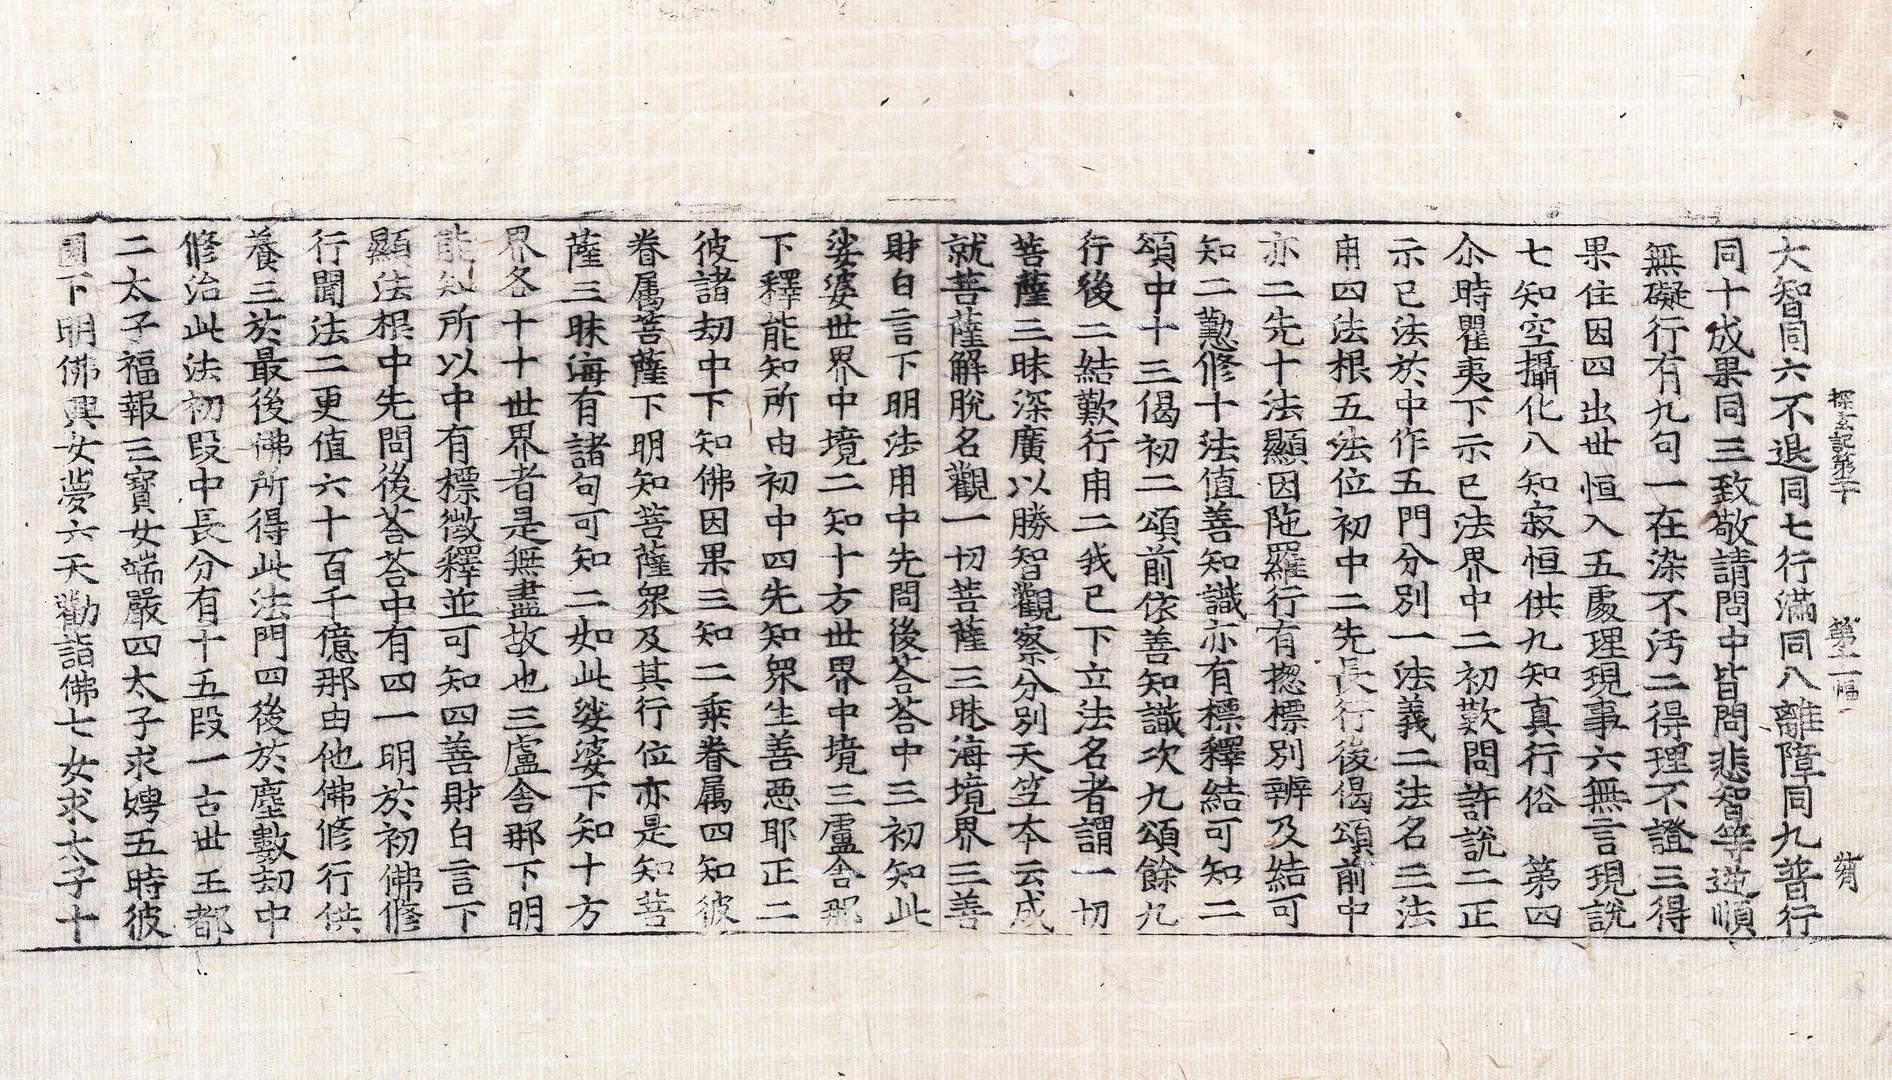 探玄記第二十　第二幅　宥
大智同六不退同七行滿同八離障同九普行
同十成果同三致敬請問中皆問悲智等逆順
無礙行有九句一在染不汚二得理不證三得
果住因四出世恒入五處理現事六無言現說
七知空攝化八知寂恒供九知真行俗　第四
尒時瞿夷下示已法界中二初歎問許說二正
示已法於中作五門分別一法義二法名三法
用四法根五法位初中二先長行後偈頌前中
亦二先十法顯因陁羅行有揔標別辨及結可
知二懃修十法值善知識亦有標釋結可知二
頌中十三偈初二頌前依善知識次九頌餘九
行後二結歎行用二我已下立法名者謂一切
菩薩三昧深廣以勝智觀察分別天笁夲云成
就菩薩解脫名觀一切菩薩三昧海境界三善
財白言下明法用中先問後荅荅中三初知此
娑婆世界中境二知十方世界中境三盧舍那
下釋能知所由初中四先知衆生善惡耶正二
彼諸刧中下知佛因果三知二乘眷属四知彼
眷属菩薩下明知菩薩衆及其行位亦是知菩
薩三昧海有諸句可知二如此娑婆下知十方
界各十十世界者是無盡故也三盧舍那下明
能知所以中有標徵釋並可知四善財白言下
顯法根中先問後荅荅中有四一明於初佛修
行聞法二更值六十百千億那由他佛修行供
養三於最後佛所得此法門四後於塵數刧中
修治此法初段中長分有十五段一古世王都
二太子福報三寶女端嚴四太子求娉五時彼
園下明佛興女夢六天勸詣佛七女求太子十